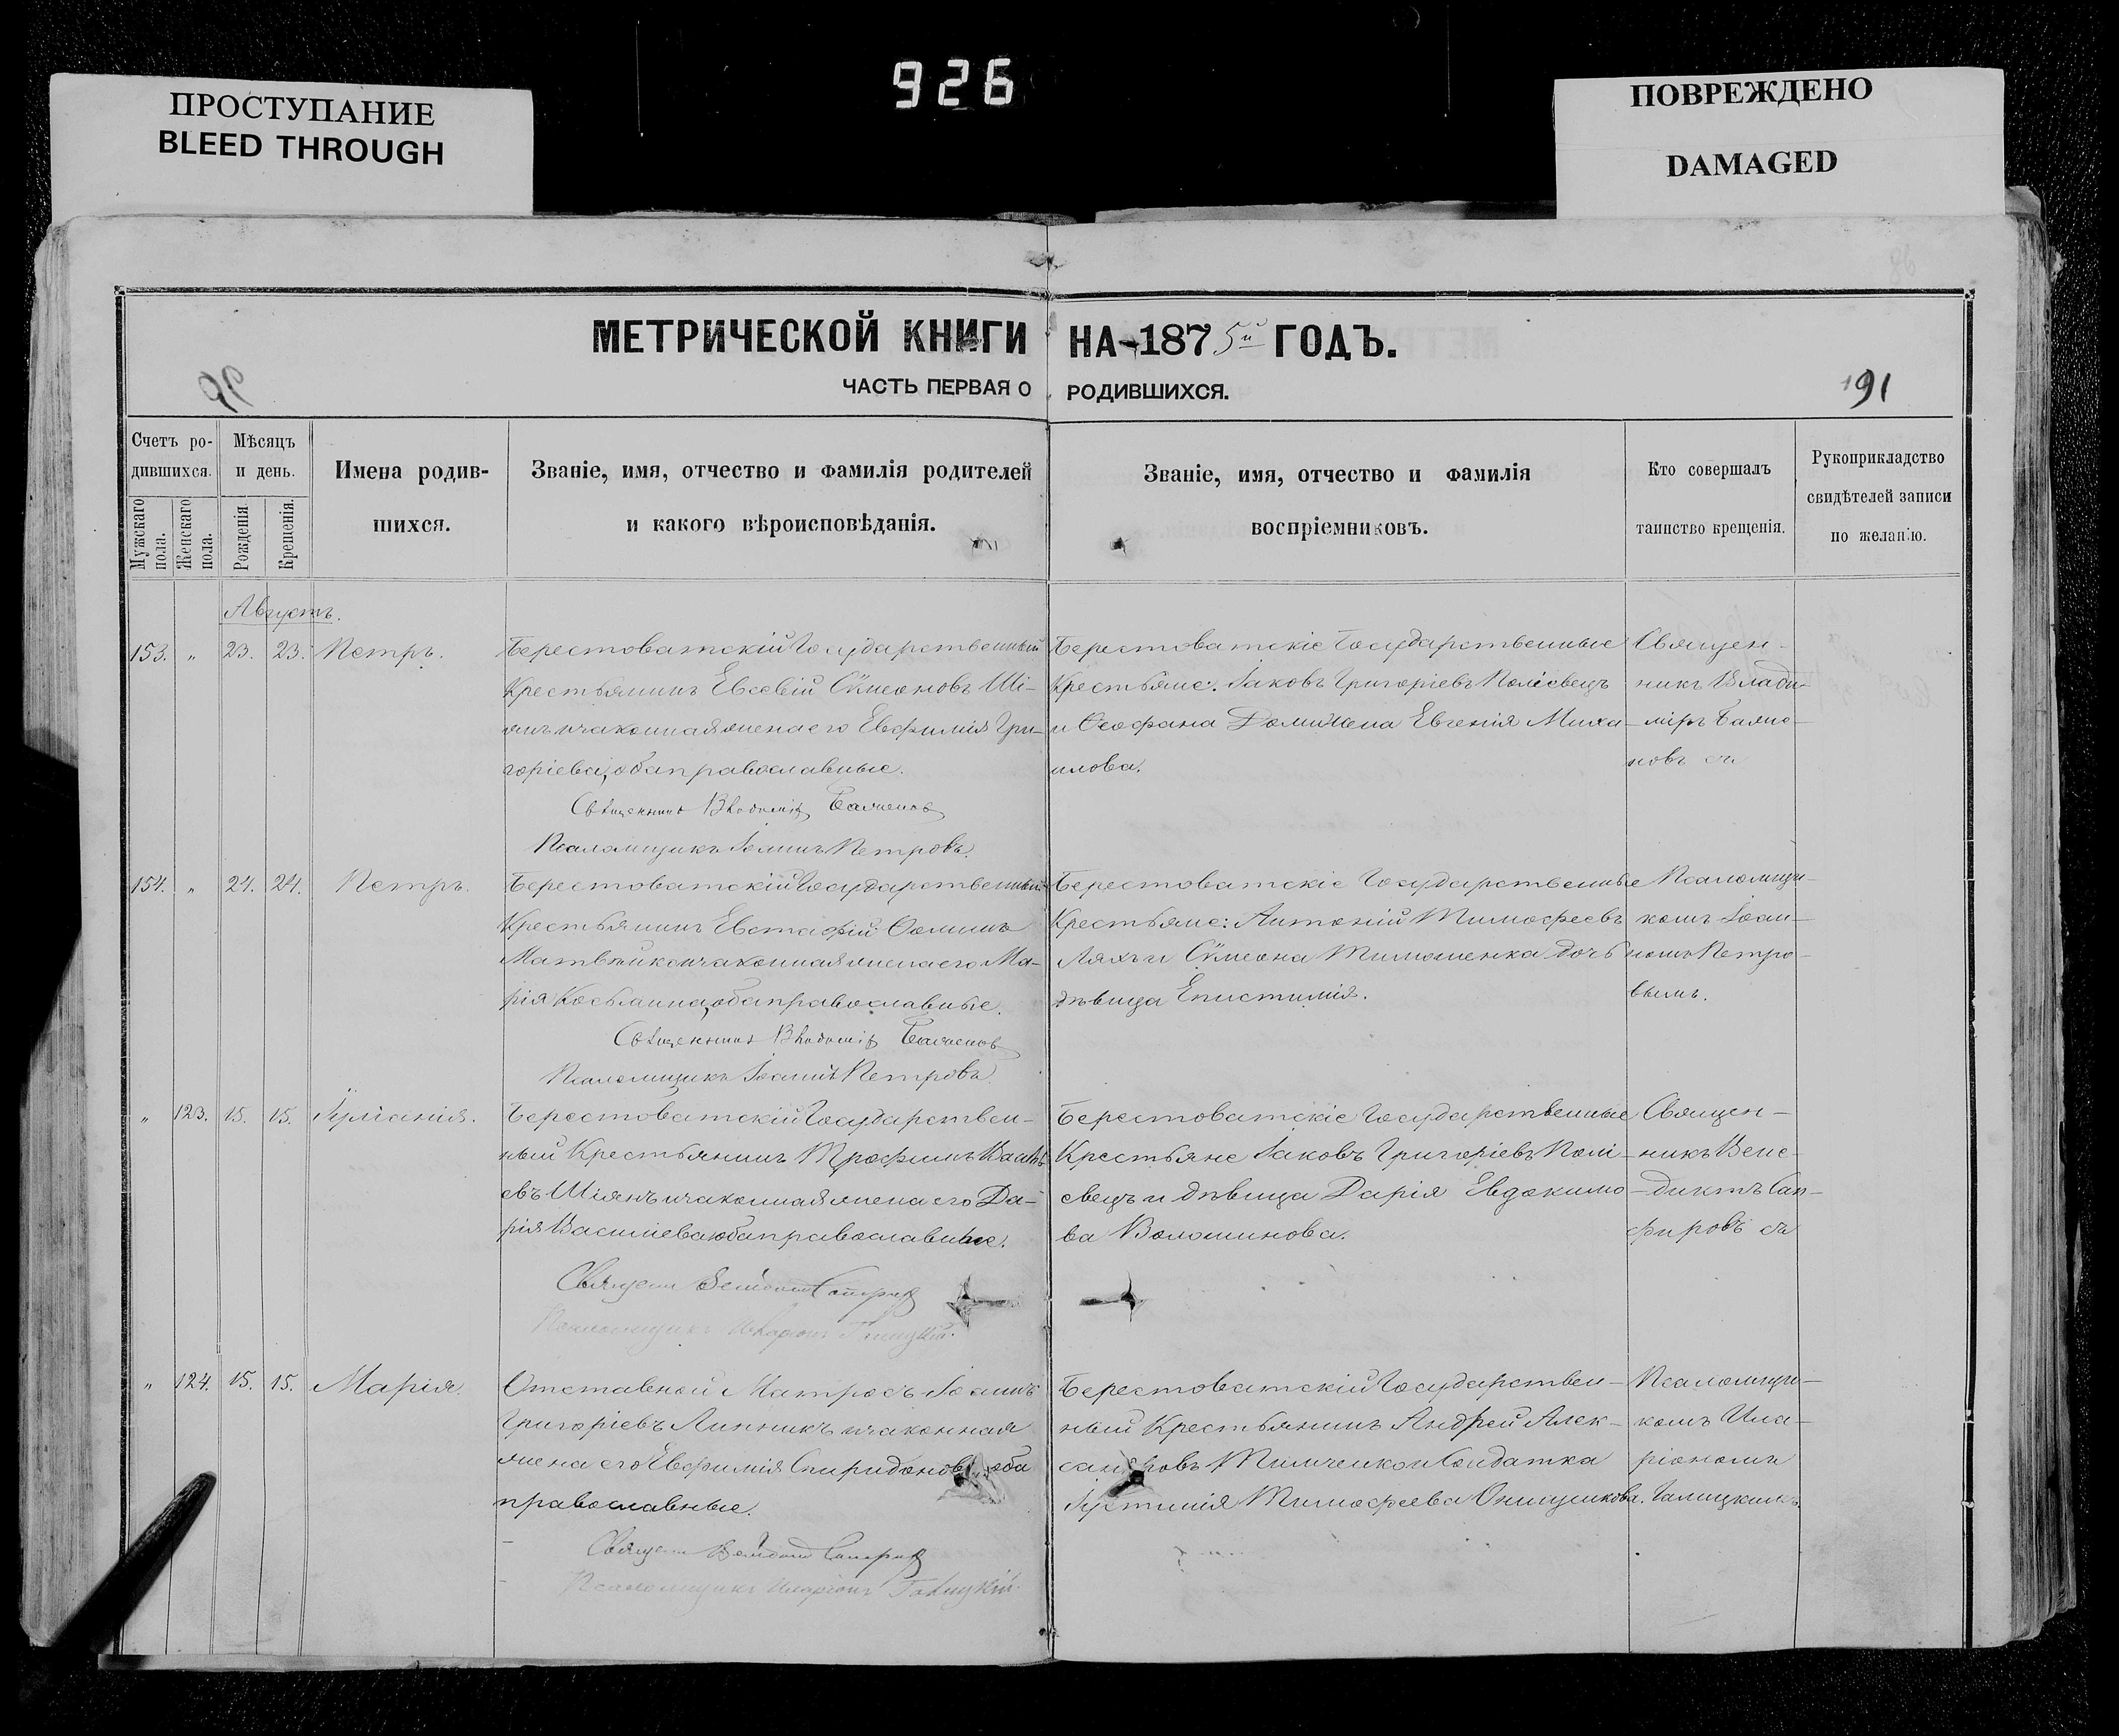 926
ПРОСТУПАНИЕ
BLEED THROUGH
ПОВРЕЖДЕНО
DAMAGED
МЕТРИЧЕСКОЙ КНИГИ НА 1875й ГОДЪ.
ЧАСТЬ ПЕРВАЯ О РОДИВШИХСЯ.
191
Счетъ ро-
дившихся.
Мужскаго пола.
Женскаго пола.
Мѣсяцъ
и день.
Рожденія
Крещенія.
Имена родив-
шихся.
Званіе, имя, отчество и фамилія родителей
и какого вѣроисповѣданія.
Званіе, имя, отчество и фамилія
воспріемниковъ.
Кто совершалъ
таинство крещенія.
Рукоприкладство
свидѣтелей записи
по желанію.
Августъ.
153. " 23. 23. Петръ.
Берестоватскій Государственный
Крестьянинъ Евсевій Сѵмеоновъ Ші-
янъ и законная жена его Евфимія Гри-
горіева, оба православные.
Священникъ Владиміръ
Псаломщикъ Іоаннъ Петровъ.
Берестоватскіе Государственные
Крестьяне: Іаковъ Григоріевъ Полісвецъ
и Ѳеофана жена Евгенія Миха-
илова.
Священ-
никъ Влади-
міръ
новъ съ
154. " 24. 24. Петръ.
Берестоватскій Государственный
Крестьянинъ Евстафій Ѳоминъ
и законная жена его Ма-
рія Косьмина, оба православные.
Священникъ Владиміръ
Псаломщикъ Іоаннъ Петровъ.
Берестоватскіе Государственные
Крестьяне: Антоній Тимоѳеевъ
Ляхъ и Сѵмеона Тимошенка дочь
дѣвица Епистимія.
Псаломщи-
комъ Іоан-
номъ Петро-
вымъ.
" 123. 15. 15. Іуліанія.
Берестоватскій Государствен-
ный Крестьянинъ Трофимъ
евъ Шіянъ и законная жена его Да-
рія Василіева, оба православные.
Священн
Псаломщикъ Иларіонъ Галицкій.
Берестоватскіе Государственные
Крестьяне Іаковъ Григоріевъ Полі-
свецъ и дѣвица Дарія Евдокимо-
ва Волошинова.
Священ-
никъ Вене-
диктъ Сап-
фировъ съ
" 124. 15. 15. Марія.
Отставной Матросъ Іоаннъ
Григоріевъ Линникъ и законная
жена его Евфимія Спиридонова, оба
православные.
Священн
Псаломщикъ Иларіонъ Галицкій.
Берестоватскій Государствен-
ный Крестьянинъ Андрей Алек-
сандровъ Тимченко и Солдатка
Іустинія Тимоѳеева Онищикова.
Псаломщи-
комъ Ила-
ріономъ
Галицкимъ.